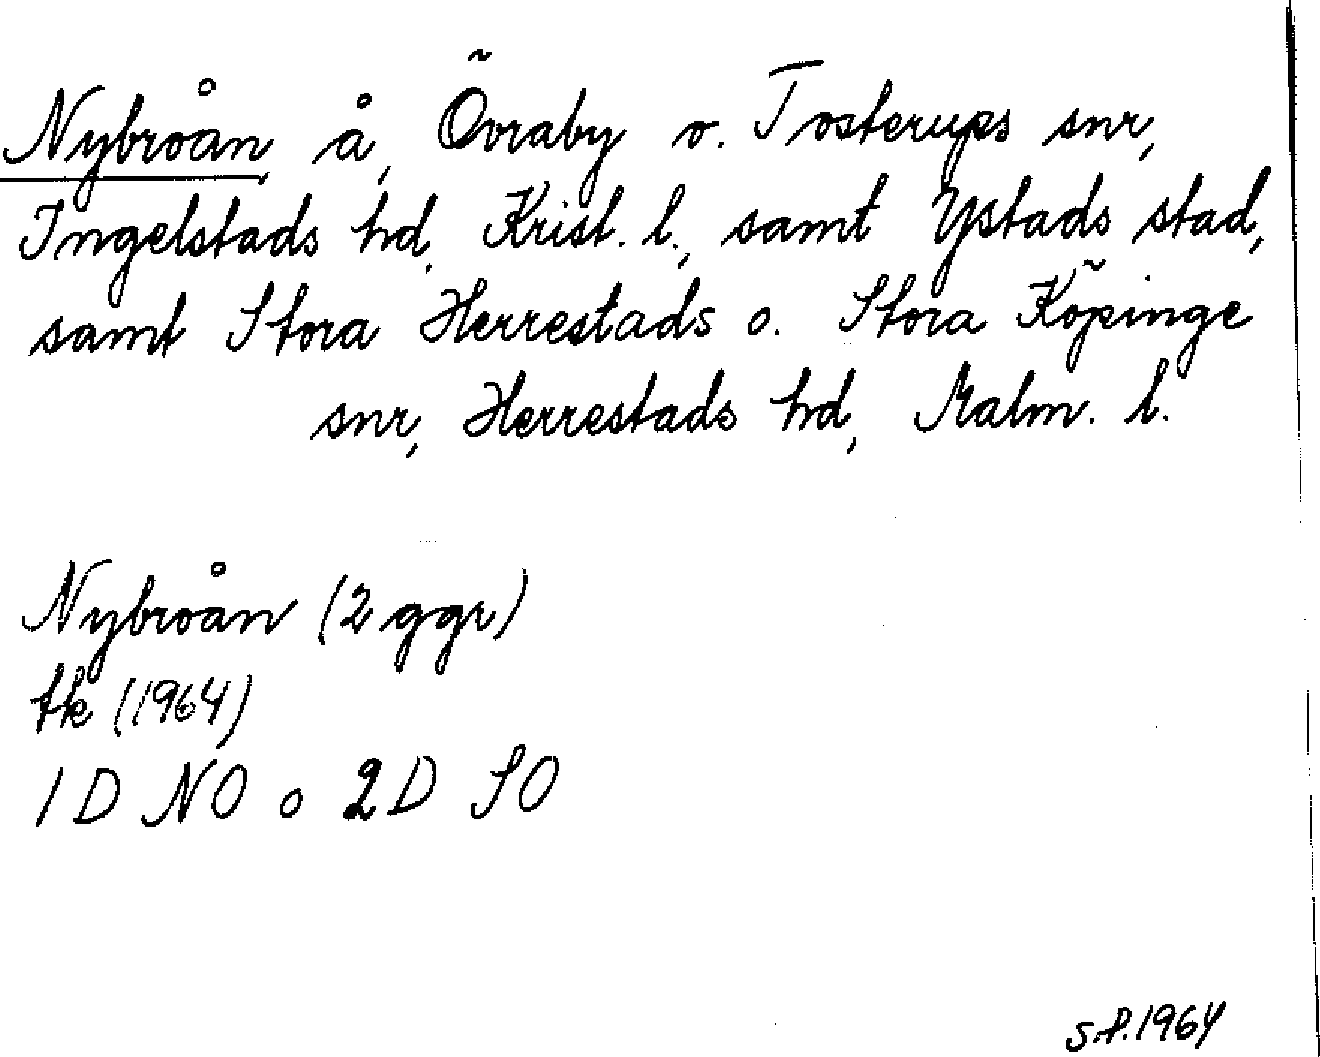 Nybroån, å, Övraby o. Tosterups snr,
Ingelstads hd, Krist. l., samt Ystads stad,
samt Stora Herrestads o. Stora Köpinge
snr, Herrestads hd, Malm. l.
Nybroån (2 ggr)
tk (1964)
1D NO o 2D SO
S.P. 1964